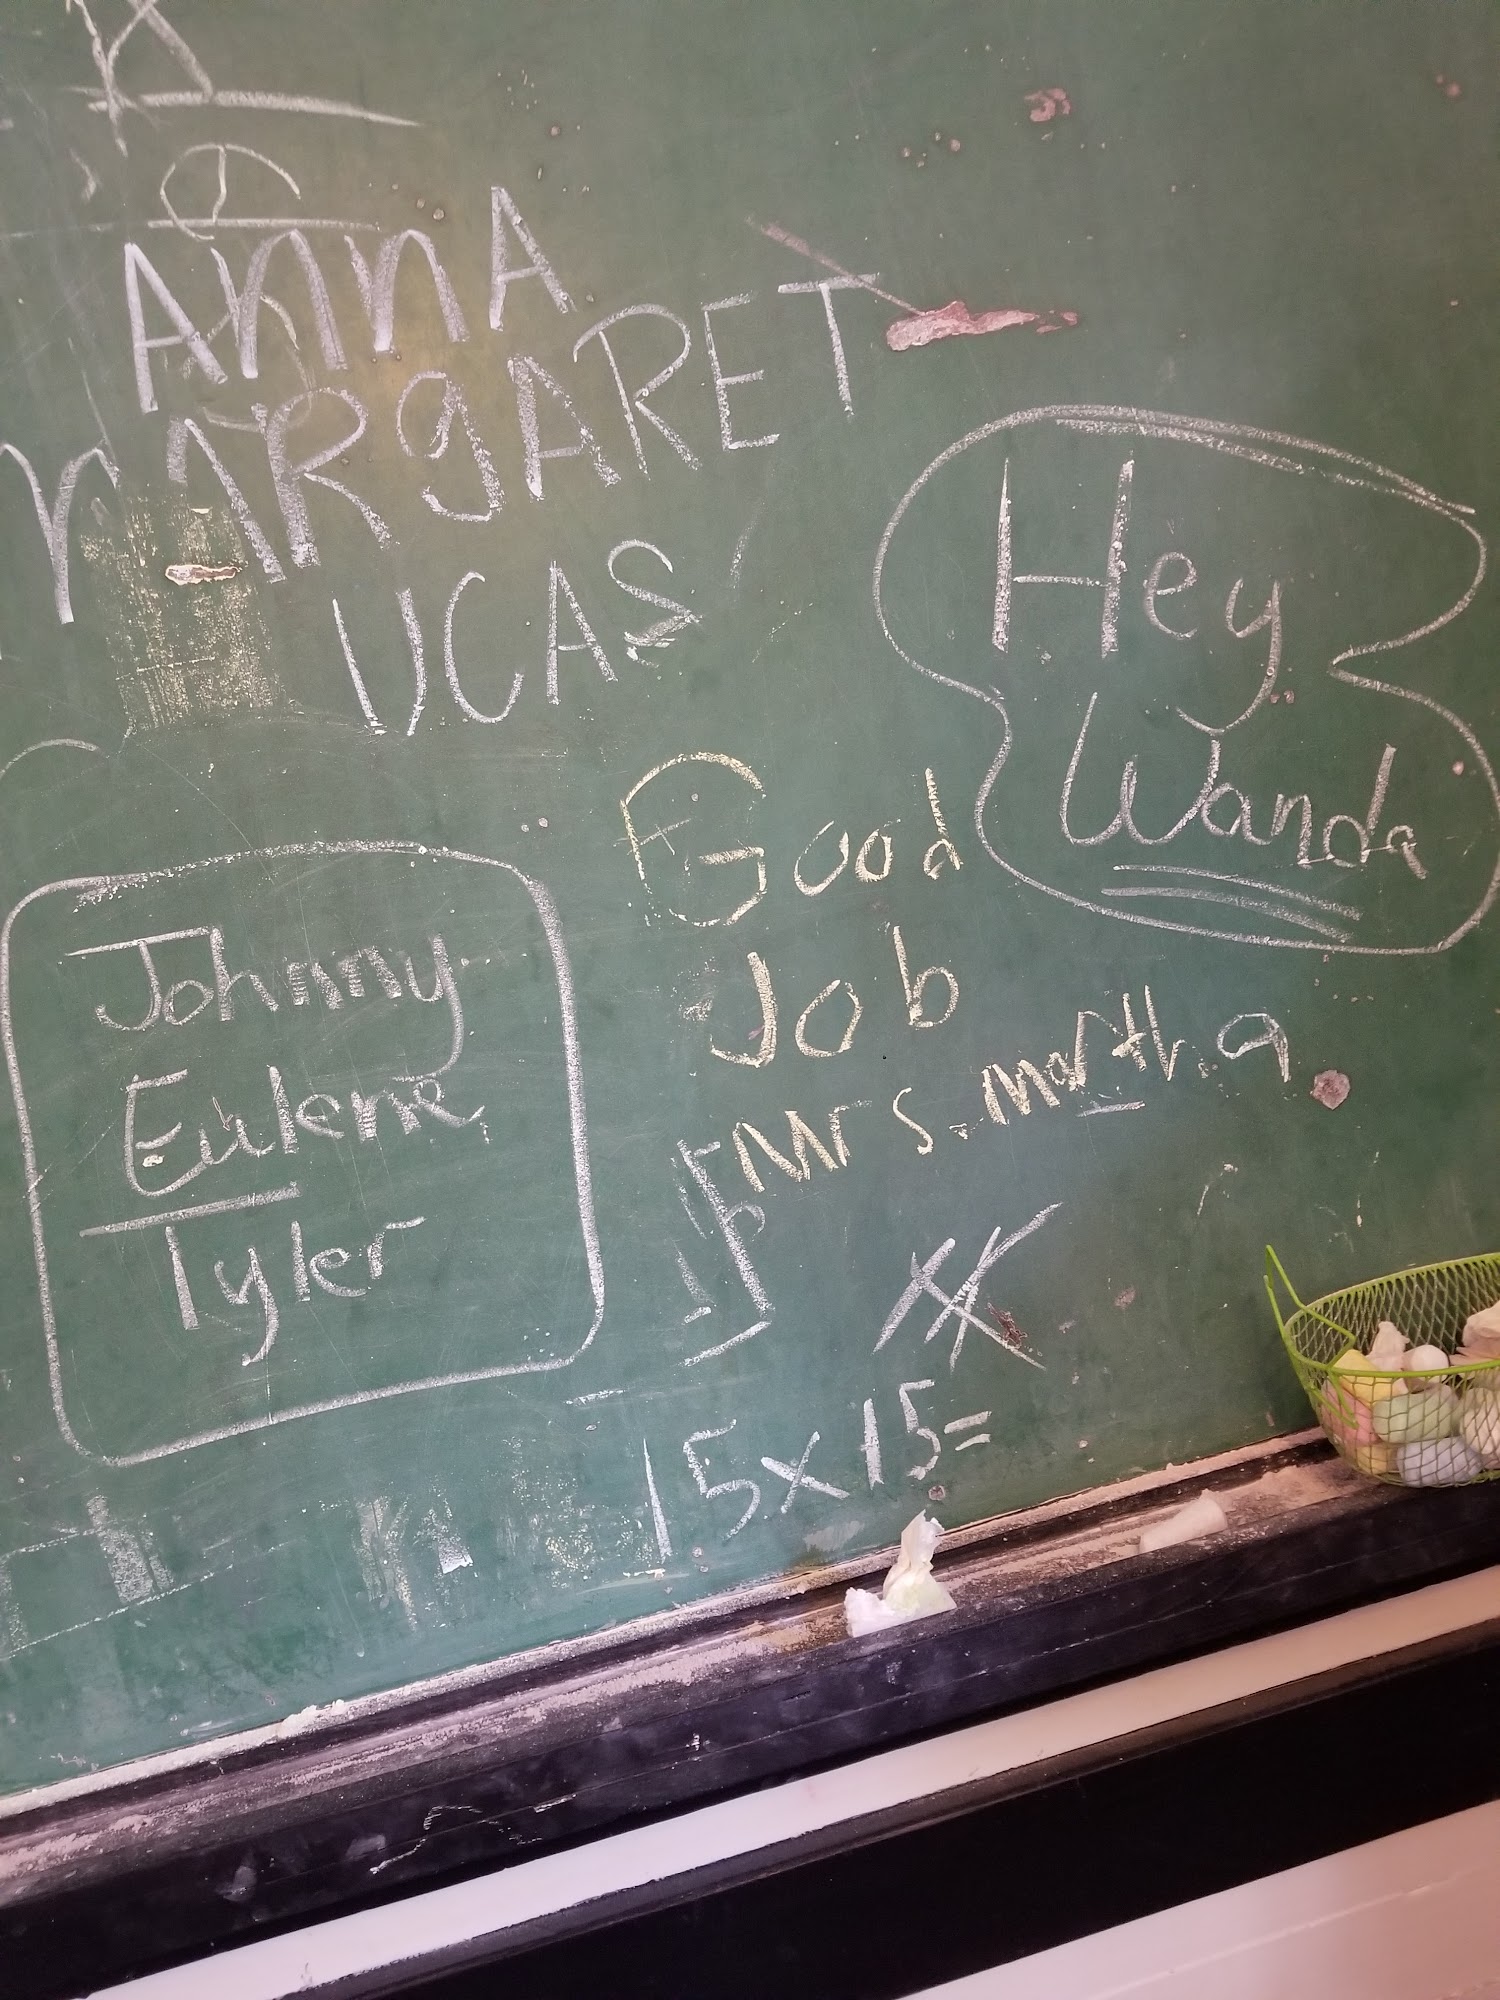 AnnA
MARgARET
UCAS
Hey
Wanda
Good
Job
Mrs. martha
Johnny
Eulene
Tyler
15x15=